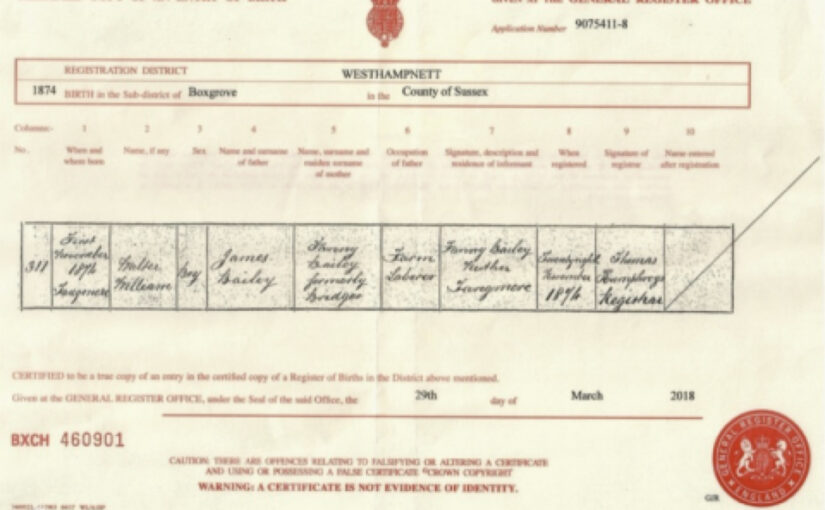 GIVEN AT THE GENERAL REGISTER OFFICE
Application Number 9075411-8
REGISTRATION DISTRICT WESTHAMPNETT
1874 BIRTH in the Sub-district of Boxgrove in the County of Sussex
Columns:- 1 2 3 4 5 6 7 8 9 10
No. When and where born Name, if any Sex Name and surname of father Name, surname and maiden surname of mother Occupation of father Signature, description and residence of informant When registered Signature of registrar Name entered after registration
311 First November 1874 Walter William Boy James Bailey Fanny Bailey formerly Bridger Farm Laborer Fanny Bailey Mother November 1874 Thomas Humphrys Registrar
CERTIFIED to be a true copy of an entry in the certified copy of a Register of Births in the District above mentioned.
Given at the GENERAL REGISTER OFFICE, under the Seal of the said Office, the 29th day of March 2018
BXCH 460901
CAUTION: THERE ARE OFFENCES RELATING TO FALSIFYING OR ALTERING A CERTIFICATE
AND USING OR POSSESSING A FALSE CERTIFICATE ©CROWN COPYRIGHT
WARNING: A CERTIFICATE IS NOT EVIDENCE OF IDENTITY.
GENERAL REGISTER OFFICE
ENGLAND